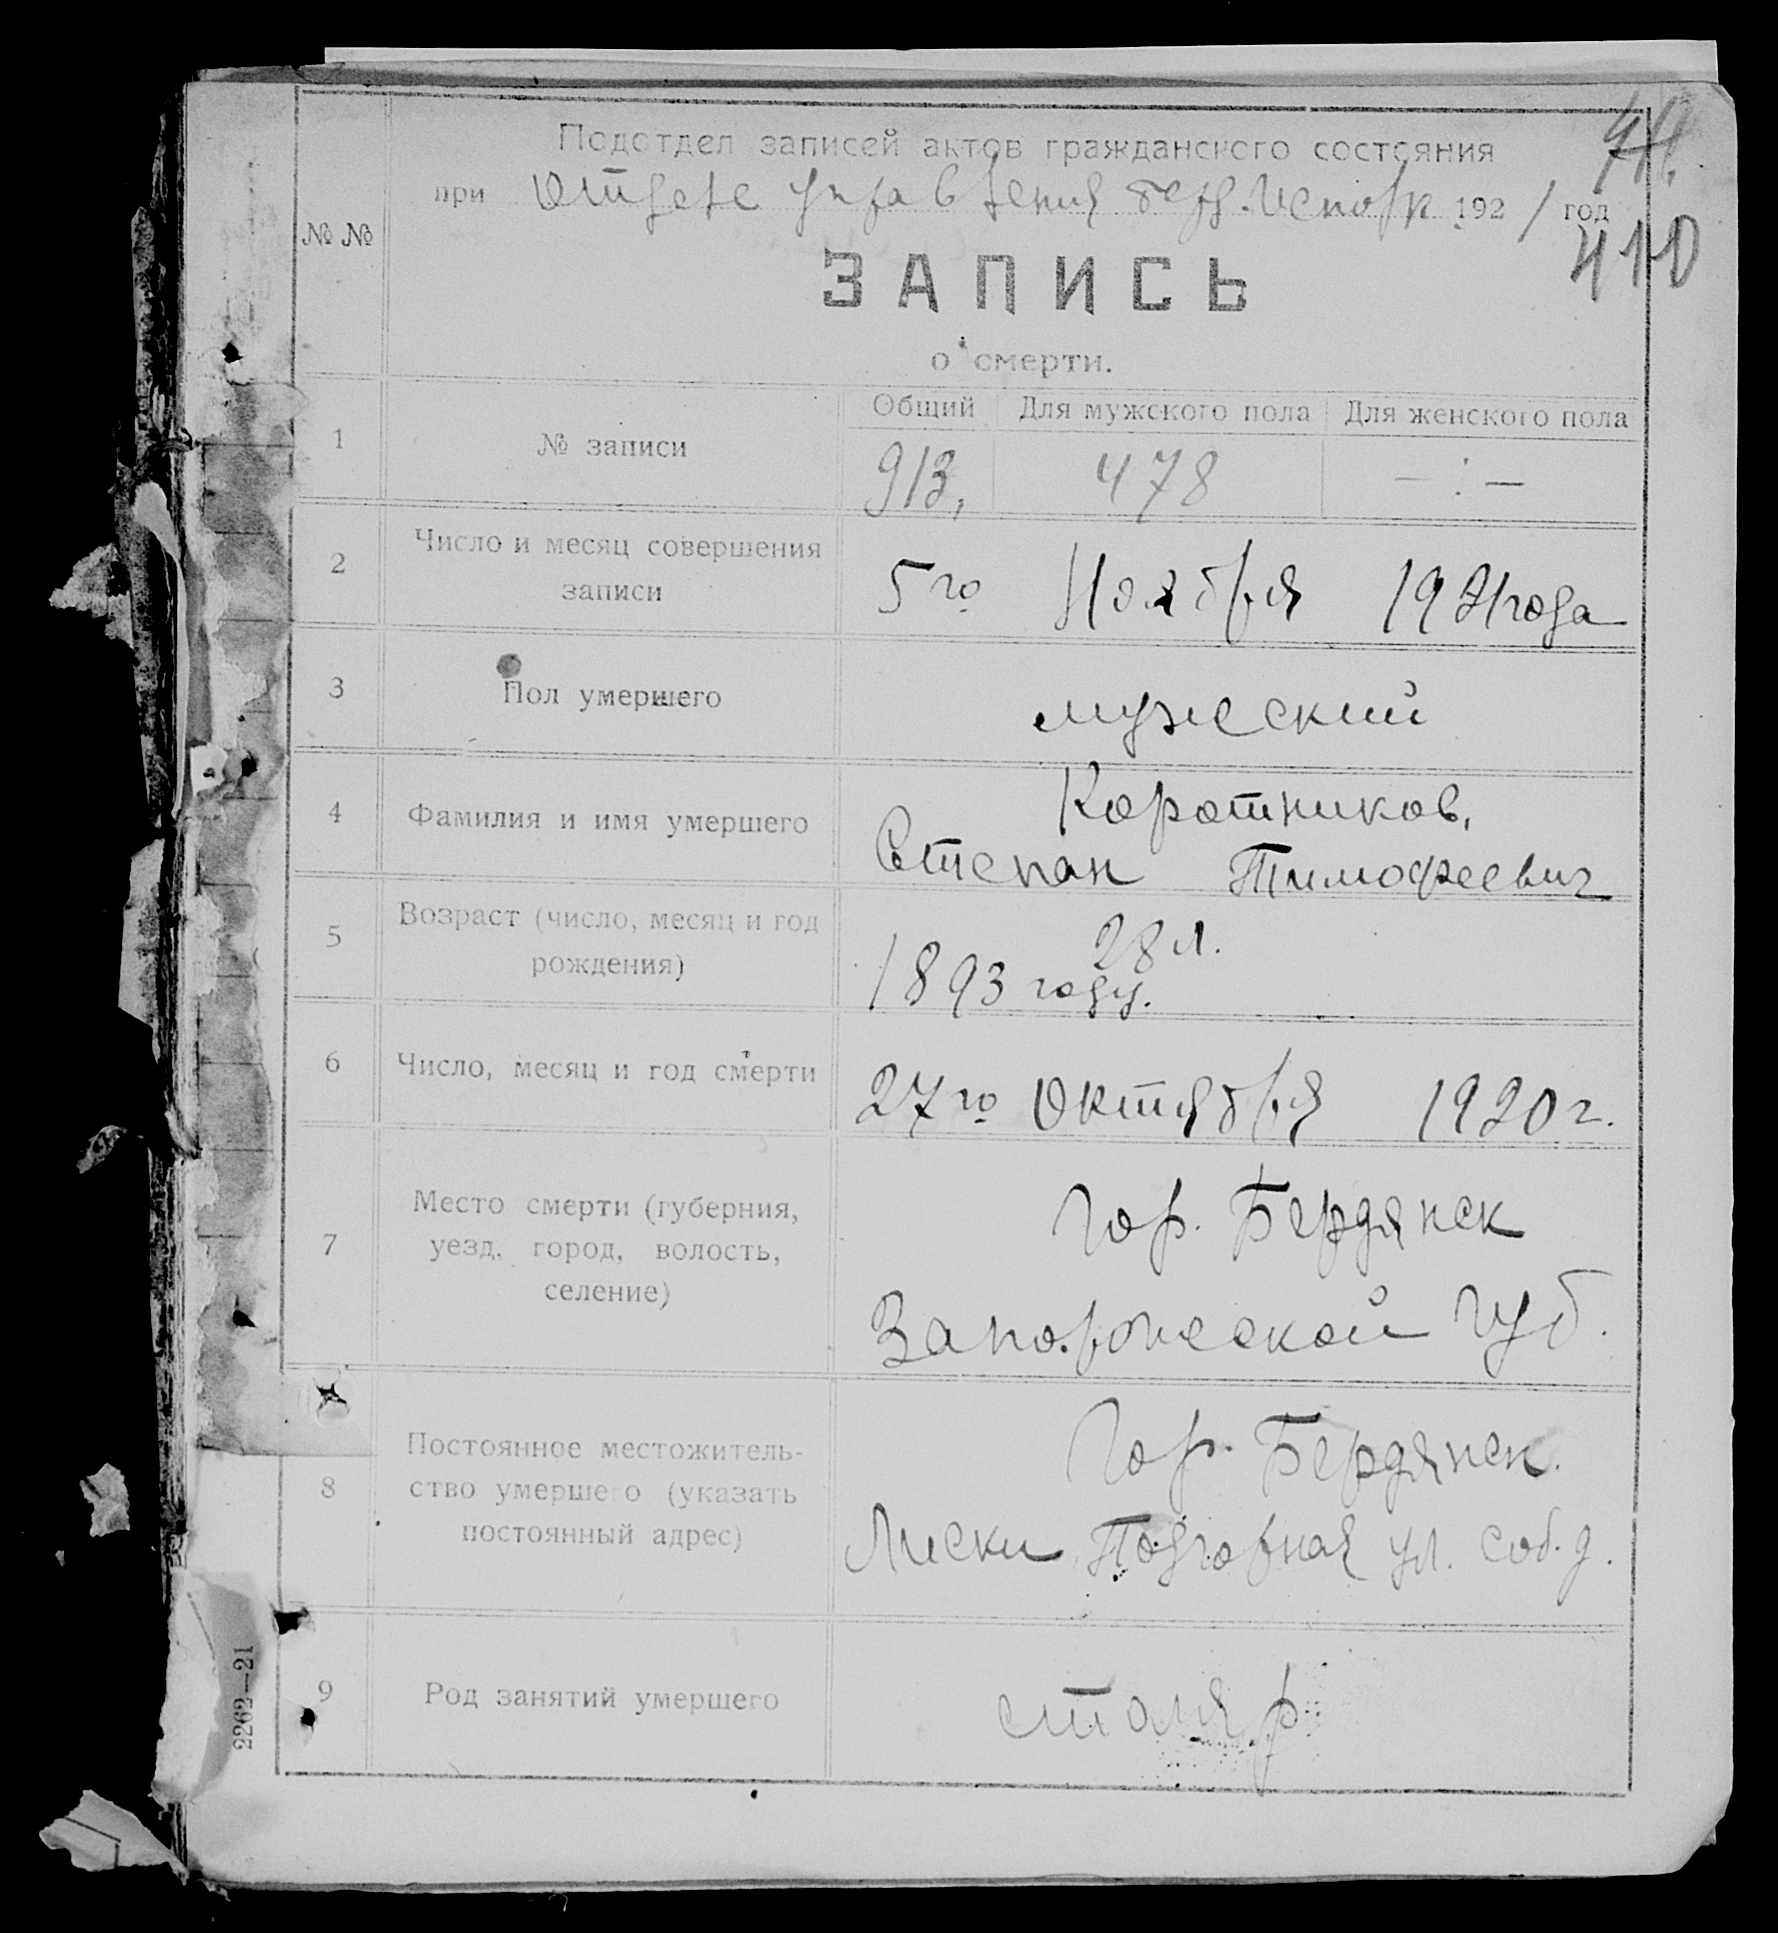 Подотдел записей актов гражданского состояния
при Отделе Управления Берд. Исполк 1921 год
410
№ №
ЗАПИСЬ
о смерти.
Общий Для мужского пола Для женского пола
1 № записи 913, 478 — : —
2 Число и месяц совершения
записи
5го Ноября 1921 года
3 Пол умершего мужеский
4 Фамилия и имя умершего
Коротников,
Степан Тимофеевич
5 Возраст (число, месяц и год
рождения)
28 л.
1893 году.
6 Число, месяц и год смерти 27го Октября 1920 г.
7 Место смерти (губерния,
уезд, город, волость,
селение)
Гор. Бердянск
Запорожеской Губ.
8 Постоянное местожитель-
ство умершего (указать
постоянный адрес)
Гор. Бердянск.
Лиски Подгорная ул. соб. д.
9 Род занятий умершего столяр
2262—21